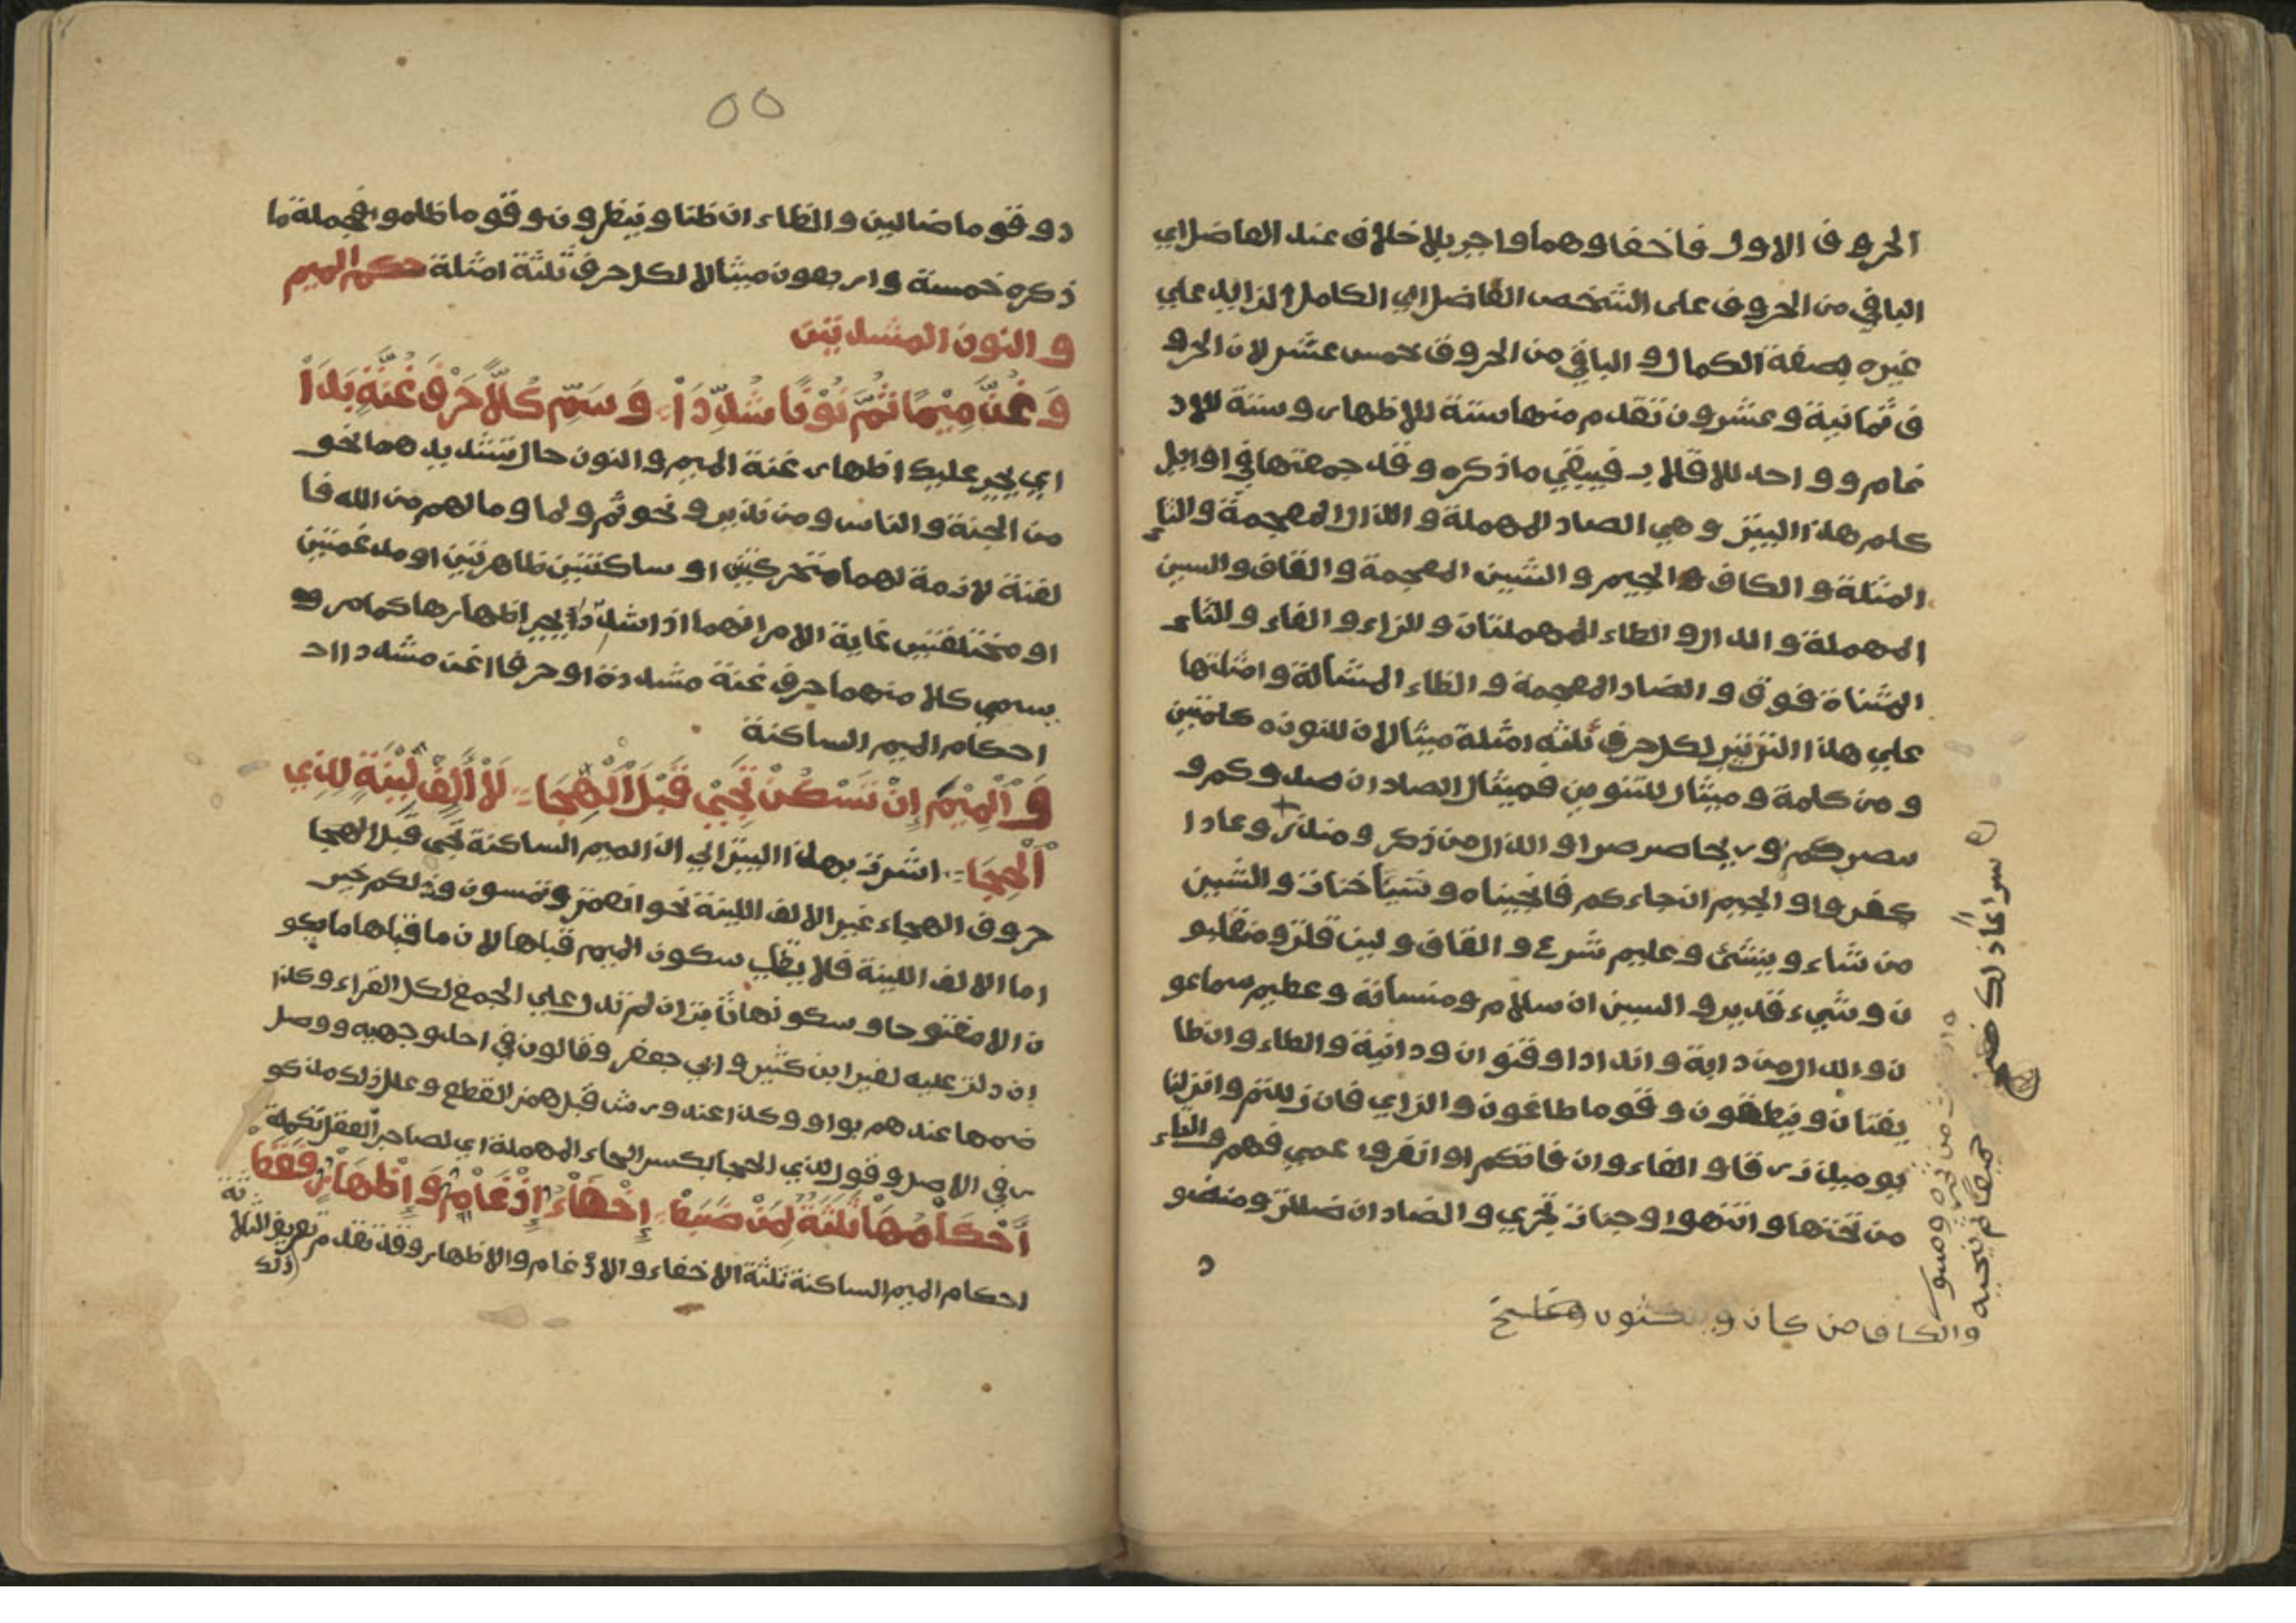 الحروف الاول فاخفاوهما واجب بلا خلاف عند الفاضل اي
الباقي من الحروف على الشخص الفاضل اي الكامل الزايد علي
غيره بصفة الكمال والباقي من الحروف خمس عشر لان الحرو
ف ثمانية وعشرون تقدم منها ستة للاظهار وستة للاد
غام وواحد للاقلاب فيبقي ما ذكره وقد جمعتها في اوايل
كلم هذا البيت وهي الصاد المهملة والذال المعجمة والثاء
المثلثة والكاف والجيم والشين المعجمة والقاف والسين
المهملة والدال والطاء المهملتان والزاء والفاء والتاء
المثناة فوق والضاد المعجمة والظاء المشالة وامثلتها
علي هذا الترتيب لكل حرف ثلثة امثلة مثالان للنون من كلمتين
ومن كلمة ومثال للتنوين فمثال الصاد ان صدوكم و
ينصركم وريحا صرصرا والذال من ذكر ومنذر وعادا
كفروا والجيم ان جاءكم فانجيناه وشيأ جنات والشين
من شاء وينشئ وعليم شرع والقاف ولين قلت ومنقلبو
ن وشيء قدير والسين ان سلام ومنسأته وعظيم سماعو
ن والدال من دابة وانداداوقنوان ودانية والطاء وان طا
يفتان وينطقون وقوما طاغون والزاي فان زللتم وانزلنا
يوميذ زرقا والفاء وان فاتكم او انفروا عمي فهم والتاء
من تحتها وانتهوا وجنات تجري والضاد ان ضللت ومنضو
د
والكاف من كان و
دوقوما ضالين والظاء ان ظنا وينظرون وقوما ظلموا فجملة ما
ذكره خمسة واربعون مثالا لكل حرف ثلثة امثلة حكم الميم
والنون المشددتين
وَغُنَّ مِيْمًا ثُمَّ نُوْنًا شُدِّدَاْ وَسَمِّ كُلًّا حَرْفَ غُنَّةٍ بَدَاْ
اي يجب عليك اظهار غنة الميم والنون حال تشديدهما نحو
من الجنة والناس ومن نذير ونحو ثم ولما ومالهم من الله فا
لغنة لازمة لهما متحركتين او ساكنتين ظاهرتين او مدغمتين
او مختلفتين غاية الامر انهما اذا شددا يجب اظهارها كما مر و
يسمي كلا منهما حرف غنة مشددة او حرفا اغن مشدداا
احكام الميم الساكنة
وَاْلمِيْمُ إِنْ تَسْكُنْ تَجِيْ قَبْلَ اْلهِجَا لَاْ أَلِفٍ لَيِّنَةٍ لِذِي
اْلحِجَا اشرت بهذا البيت الي ان الميم الساكنة تجي قبل الهجا
حروف الهجاء غير الالف اللينة نحو انعمت وتمسون وذلكم خير
اما الالف اللينة فلا سكون الميم قبلها لان ما قبلها ما يكو
ن الا مفتوحا وسكونها ثابت ان لم تدل علي الجمع لكل القراء وكذا
ان دلت عليه لغير ابن كثير وابي جعفر وقالون في احد وجهيه ووصل
ضمها عندهم بواو وكذا عند ورش قبل همز القطع وعلل ذلك مذكو
ر في الاصل وقول لذي الحجا بكسر الحاء المهملة اي لصاحب العقل تكملة
أَحْكَاْمُهَاْ ثَلَثَةٌ لِمَنْ ضَبَطْ إِخْفَاْءٌ إِدْغَاْمٌ وَإِظْهَاْرٌ فَقَطْ
احكام الميم الساكنة ثلثة الاخفاء والادغام والاظهار وقد تقدم تعريف الثلا
ثة
ذلك